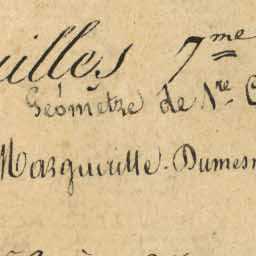 uilles 7me
Géomètre de 1re C
Marguerille-Dumesn